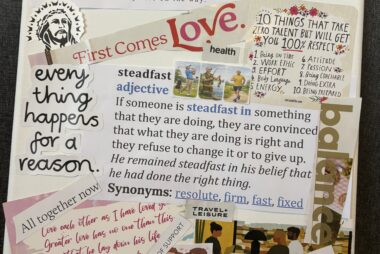 First Comes Love.
health
10 THINGS THAT TAKE
ZERO TALENT BUT WILL GET
YOU 100% RESPECT
1. BEING ON TIME
2. WORK ETHIC
3. EFFORT
4. BODY LANGUAGE
5. ENERGY
6. ATTITUDE
7. PASSION
8. BEING COACHABLE
9. DOING EXTRA
10. BEING PREPARED
every
thing
happens
for a
reason.
steadfast
adjective
If someone is steadfast in something
that they are doing, they are convinced
that what they are doing is right and
they refuse to change it or to give up.
He remained steadfast in his belief that
he had done the right thing.
Synonyms: resolute, firm, fast, fixed
balance
All together now
Love each other as I have loved
Greater love has no one than this
that he lay down his life
OF SUPPORT
TRAVEL+
LEISURE